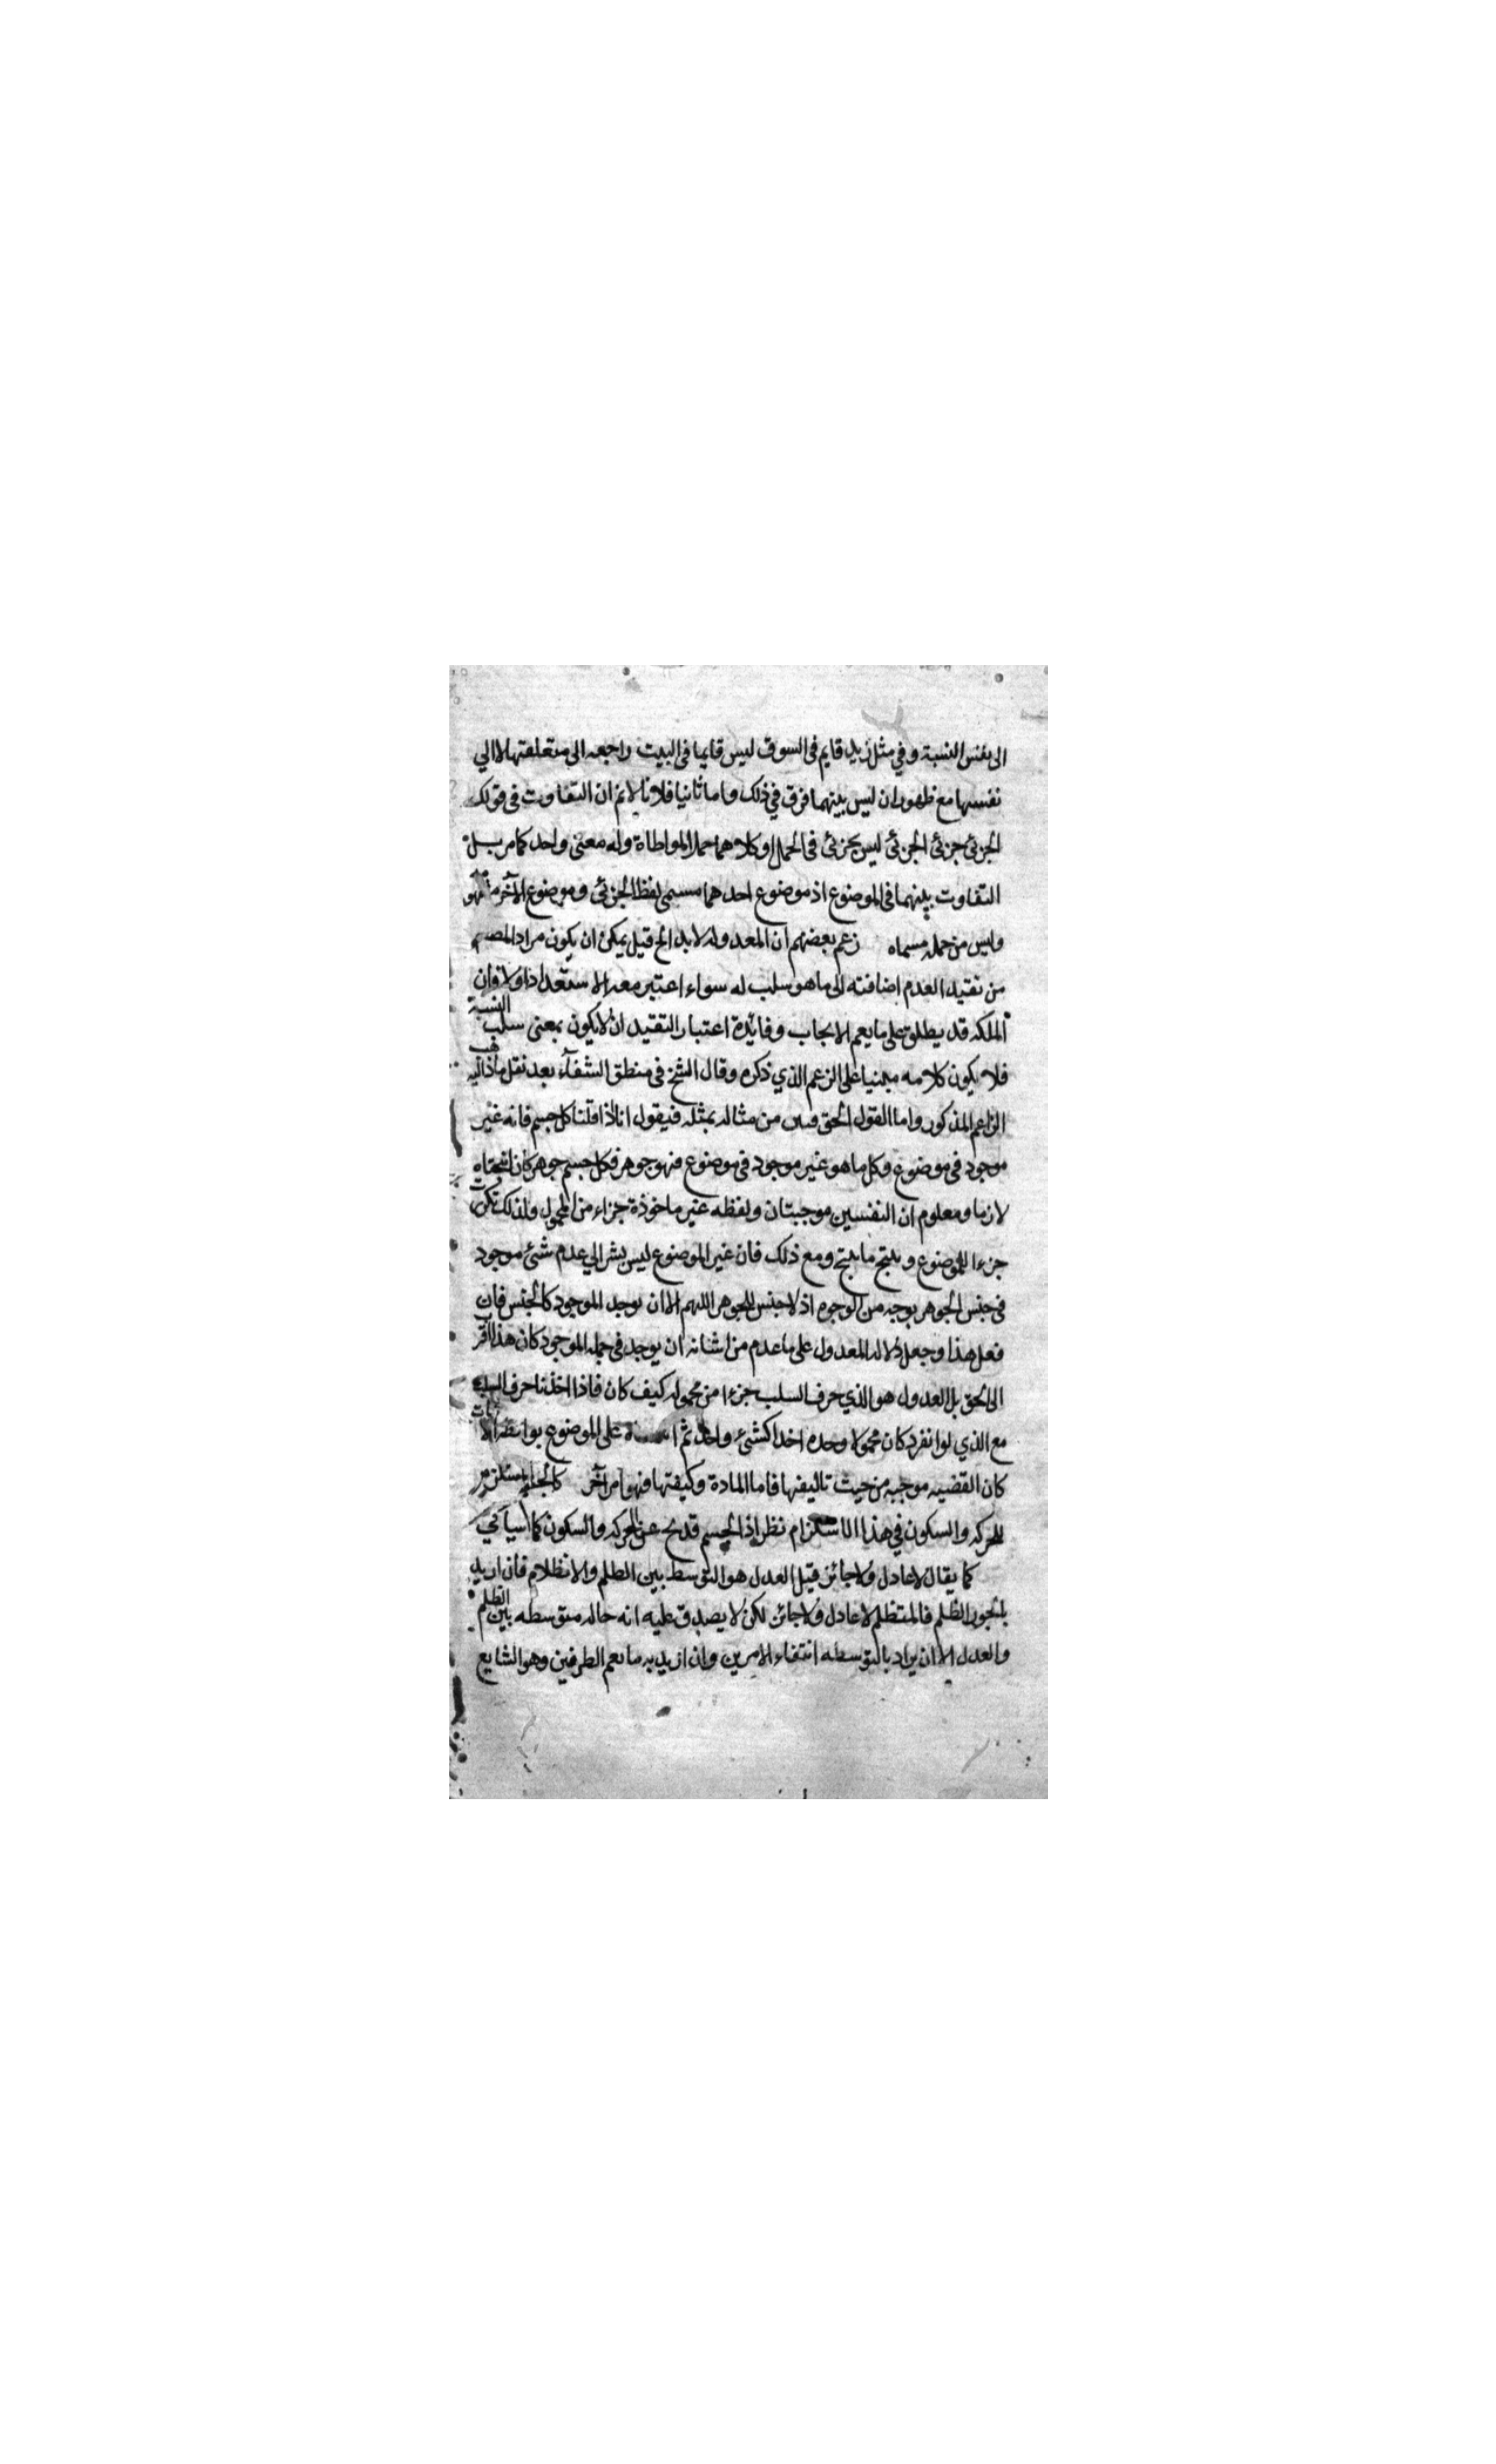 الى نفس النسبة وفي مثل زيد قايم فى السوق ليس قايما فى البيت راجعه الى متعلقتها لا الي
نفسها مع ظهور ان ليس بينهما فرق في ذلك واما ثانيا فلانا لانم ان التفاوت فى قولك
الجزئى جزئى الجزئى ليس بجزئى فى الحمل او كلاهما حمل المواطاة وله معنى واحد كما مر بل
التفاوت بينهما فى الموضوع اذ موضوع احدهما مسمى لفظ الجزئى وموضوع الآخر مفهو
وليس من حمله مسماه زعم بعضهم ان المعدوله لا بد الخ قيل يمكن ان يكون مراد المصـ
من تقييد العدم اضافته الى ما هو سلب له سواء اعتبر معه الاستعداد اولا فان
الملكه قد يطلق على ما يعم الايجاب وفائدة اعتبار التقييد ان لا يكون بمعنى سلب النسبة
فلا يكون كلامه مبنيا على الزعم الذي ذكره وقال الشيخ فى منطق الشفآء بعد نقل ما ذهب اليه
الزاعم المذكور واما القول الحق من مثاله بمثله فيقول انا اذا قلنا كل جسم فانه غير
موجود فى موضوع وكل ما هو غير موجود فى موضوع فهو جوهر فكل جسم جوهر كان انتجناه
لازما ومعلوم ان النفسين موجبتان ولفظه غير ماخوذة جزاء من المحمول ولذلك تكرت
جزءا للموضوع وينتج ما ينتج ومع ذلك فان غير الموضوع ليس يشير الي عدم شئ موجود
فى جنس الجوهر بوجه من الوجوه اذ لا جنس للجوهر اللهم الا ان يوجد الموجود كالجنس فان
فعل هذا وجعل دلاله المعدول على ما عدم من شانه ان يوجد في جمله الموجود كان هذا اقرب
الى الحق بل العدول هو الذي حرف السلب جزءا من محموله كيف كان فاذا اخذنا حرف السلب
مع الذي لو انفرد كان محمولا وحده اخذا كشئ واحد ثم على الموضوع اثبات
كان القضيه موجبه من حيث تاليفها فاما المادة وكيفتها فهو امر آخر كالجسم المستلزم
للحركه والسكون في هذا الاستلزام نظر اذ الجسم قد يخ عن الحركه والسكون كما سيأتي
كما يقال لا عادل ولا جائز قيل العدل هو التوسط بين الظلم والانظلام فان اريد
بالجور الظلم فالمتظلم لا عادل ولا جائز لكن لا يصدق عليه انه حاله متوسطه بين الظلم
والعدل الا ان يراد بالتوسطه انتفاء الامرين وان اريد به ما يعم الطرفين وهو الشايع